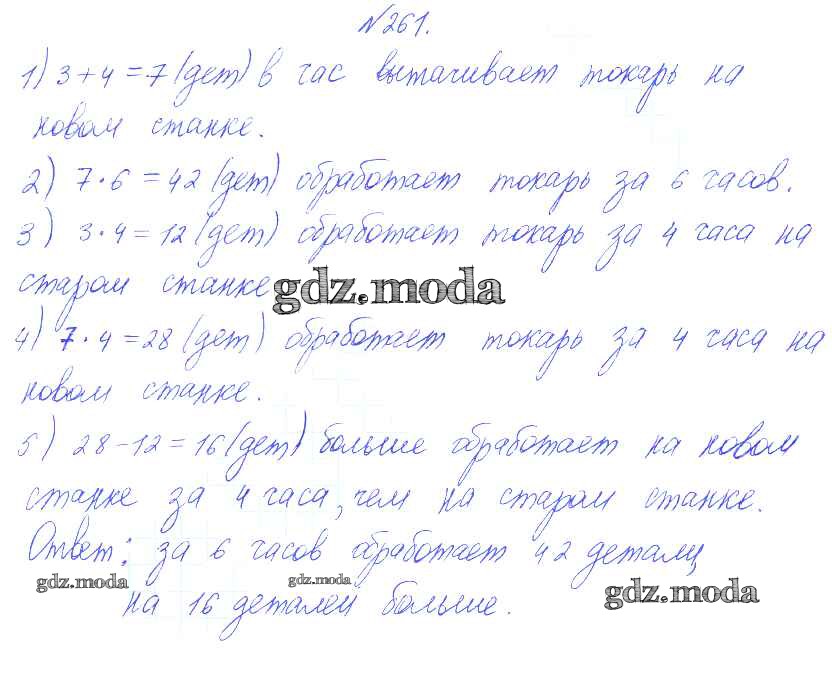 №261.
1) 3+4=7 (дет) в час вытачивает токарь на
новом станке.
2) 7·6=42 (дет) обработает токарь за 6 часов.
3) 3·4=12 (дет) обработает токарь за 4 часа на
старом станке
gdz.moda
4) 7·4=28 (дет) обработает токарь за 4 часа на
новом станке.
5) 28-12=16 (дет) больше обработает на новом
станке за 4 часа, чем на старом станке.
Ответ: за 6 часов обработает 42 детали,
gdz.moda
gdz.moda
gdz.moda
на 16 деталей больше.